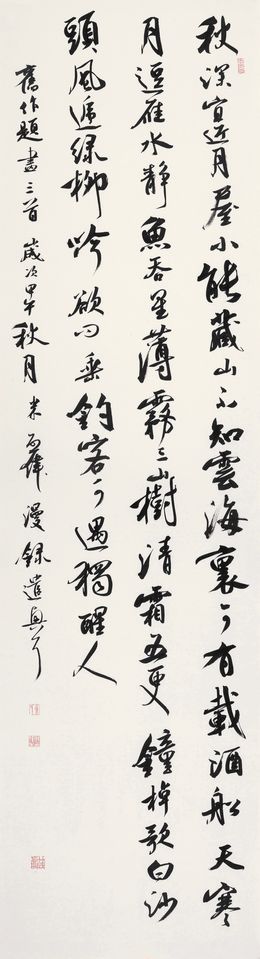 秋深宜近月屋小能藏山不知雲海裏可有載酒船天寒
月逗雁水靜魚吞星薄霧三山樹清霜五更鐘棹歌白沙
頭風遞綠柳吟欲問垂釣客可遇獨醒人
舊作題畫三首歲次甲午秋月米漫錄遣興